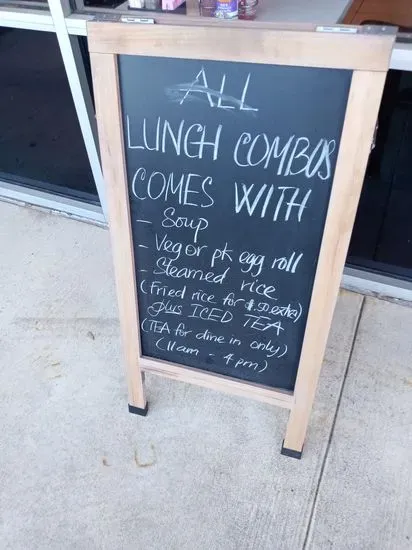 ALL
LUNCH COMBOS
COMES WITH
- Soup
- Veg or pk egg roll
- Steamed rice
(Fried rice for $.50 extra)
plus ICED TEA
(TEA for dine in only)
(11am - 4pm)